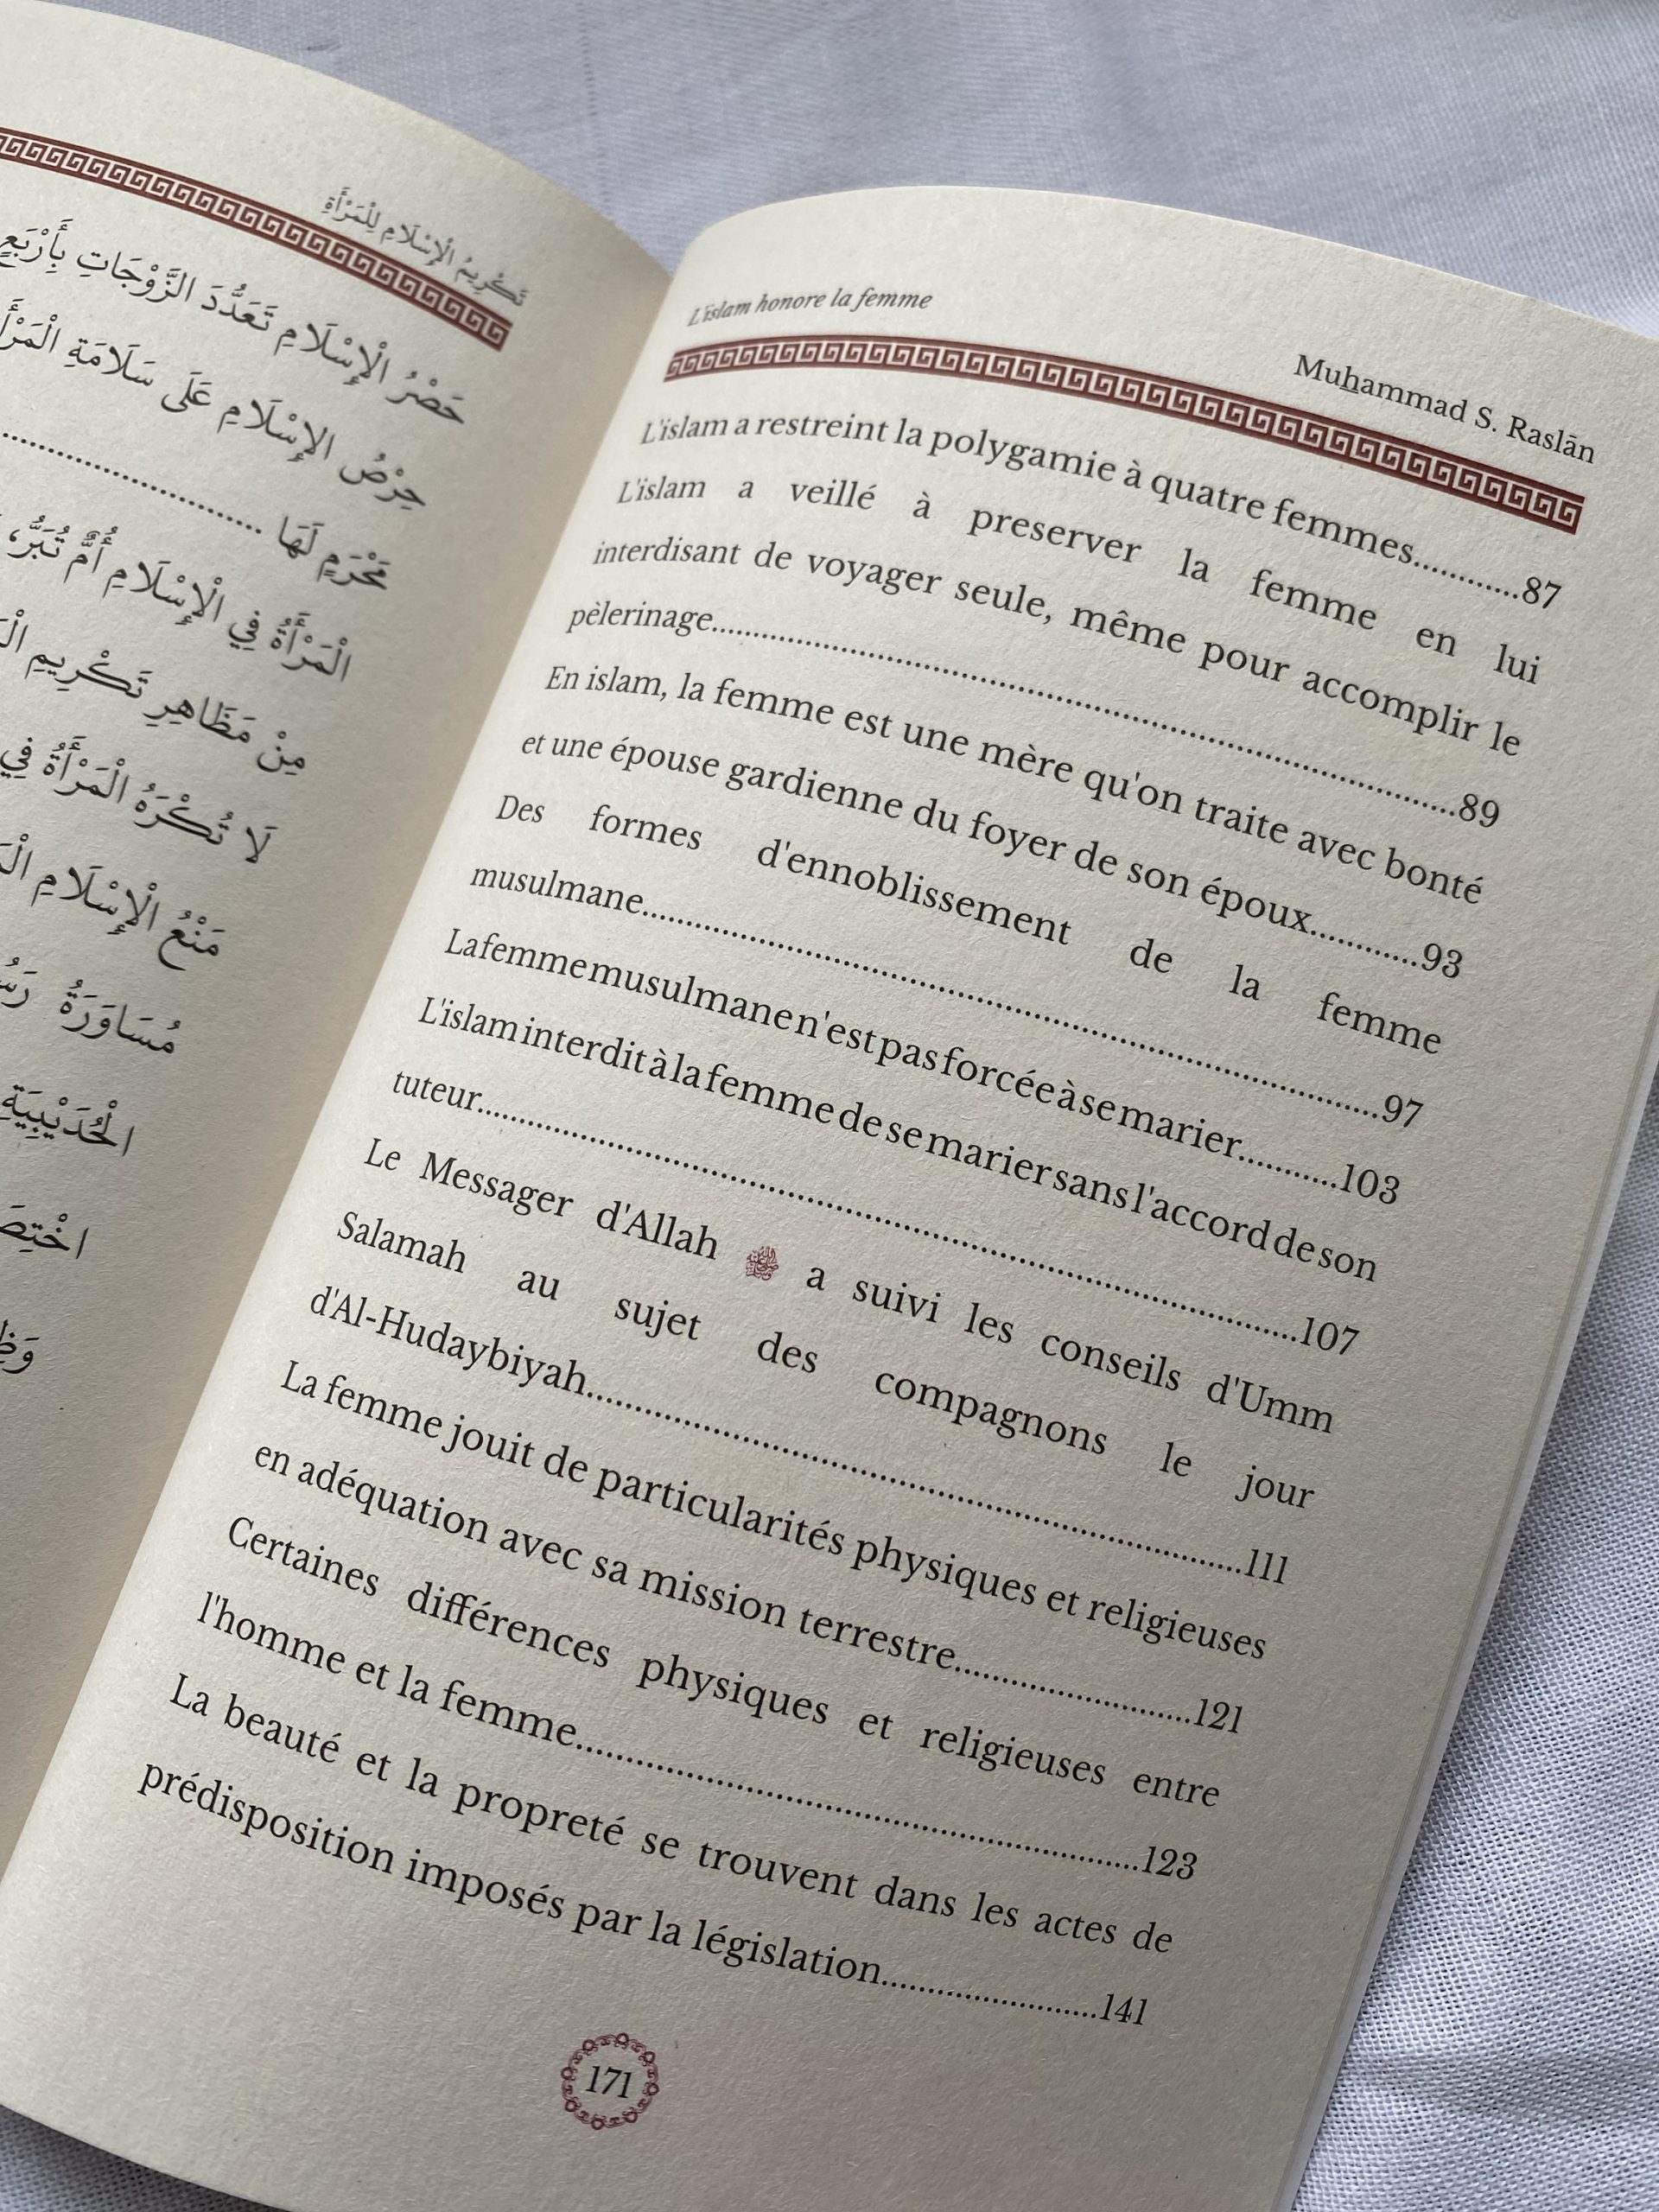 تَكْرِيمُ الْإِسْلَامِ لِلْمَرْأَةِ
حَصْرُ الْإِسْلَامِ تَعَدُّدَ الزَّوْجَاتِ بِأَرْبَعٍ
حِرْصُ الإِسْلَامِ عَلَى سَلَامَةِ الْمَرْأَ
مَحْرَمٍ لَهَا ..............................
الْمَرْأَةُ فِي الْإِسْلَامِ أُمٌّ تُبَرُّ،
مِنْ مَظَاهِرِ تَكْرِيمِ
لَا تُكْرَهُ الْمَرْأَةُ فِي
مَنْعُ الْإِسْلَامِ
مُسَاوَرَةُ
الْحُدَيْبِيَةِ
L'islam honore la femme
Muhammad S. Raslān
L'islam a restreint la polygamie à quatre femmes...........87
L'islam a veillé à preserver la femme en lui
interdisant de voyager seule, même pour accomplir le
pèlerinage..............................................................................89
En islam, la femme est une mère qu'on traite avec bonté
et une épouse gardienne du foyer de son époux...........93
Des formes d'ennoblissement de la femme
musulmane..............................................................................97
La femme musulmane n'est pas forcée à se marier..........103
L'islam interdit à la femme de se marier sans l'accord de son
tuteur..............................................................................107
Le Messager d'Allah ﷺ a suivi les conseils d'Umm
Salamah au sujet des compagnons le jour
d'Al-Hudaybiyah......................................................................111
La femme jouit de particularités physiques et religieuses
en adéquation avec sa mission terrestre.........................121
Certaines différences physiques et religieuses entre
l'homme et la femme............................................................123
La beauté et la propreté se trouvent dans les actes de
prédisposition imposés par la législation.......................141
171